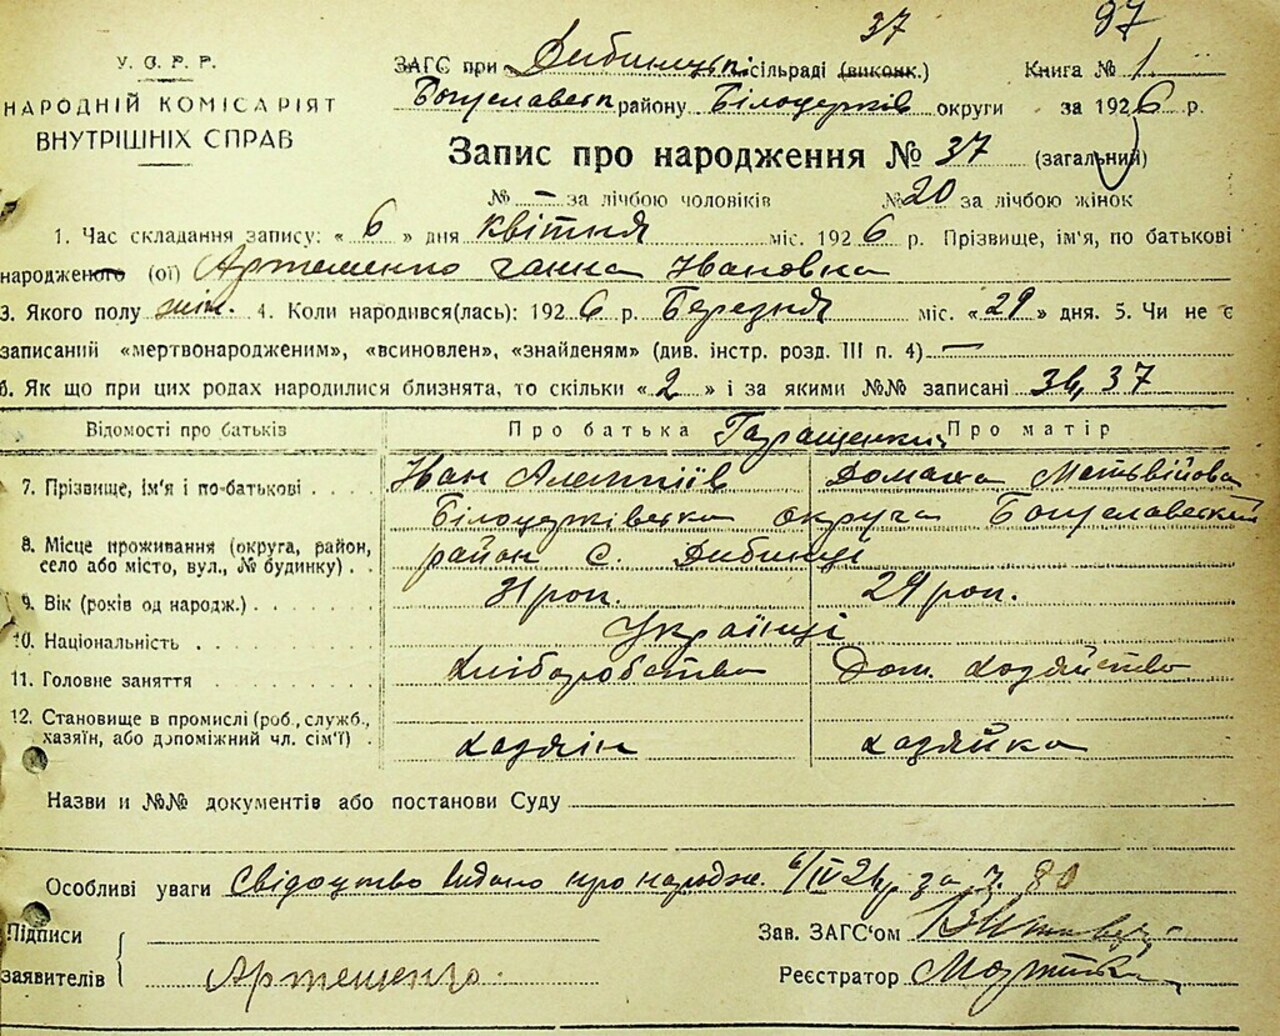 37 97
У. С. Р. Р.
НАРОДНІЙ КОМІСАРІЯТ
ВНУТРІШНІХ СПРАВ
ЗАГС при Дибинецькі сільраді (виконк.) Книга № 1
Богуславськ району Білоцерків округи за 1926 р.
Запис про народження № 37 (загальний)
№ — за лічбою чоловіків № 20 за лічбою жінок
1. Час складання запису: « 6 » дня квітня міс. 1926 р. Прізвище, ім'я, по батькові
народженого (ої) Артеменко Ганна Івановна
3. Якого полу жін. 4. Коли народився(лась): 1926 р. Березня міс. «29» дня. 5. Чи не є
записаний «мертвонародженим», «всиновлен», «знайденям» (див. інстр. розд. III п. 4) —
6. Як що при цих родах народилися близнята, то скільки «2» і за якими №№ записані 36, 37
Відомості про батьків Про батька Про матір
7. Прізвище, ім'я і по-батькові Іван Алексіїв Домаха Матьвійова
Білоцерківська округа Богуславський
8. Місце проживання (округа, район,
село або місто, вул., № будинку) район С. Дибинці
9. Вік (років од народж.) 31 рок. 29 рок.
10. Національність Українці
11. Головне заняття Хліборобство Дом. хозяйство
12. Становище в промислі (роб., служб.,
хазяїн, або допоміжний чл. сім'ї) хазяїн хазяйка
Назви и №№ документів або постанови Суду
Особливі уваги Свідоцтво видано про народж. 6/IV 26 р за № 80
Підписи
заявителів Артеменко
Зав. ЗАГС'ом
Реєстратор